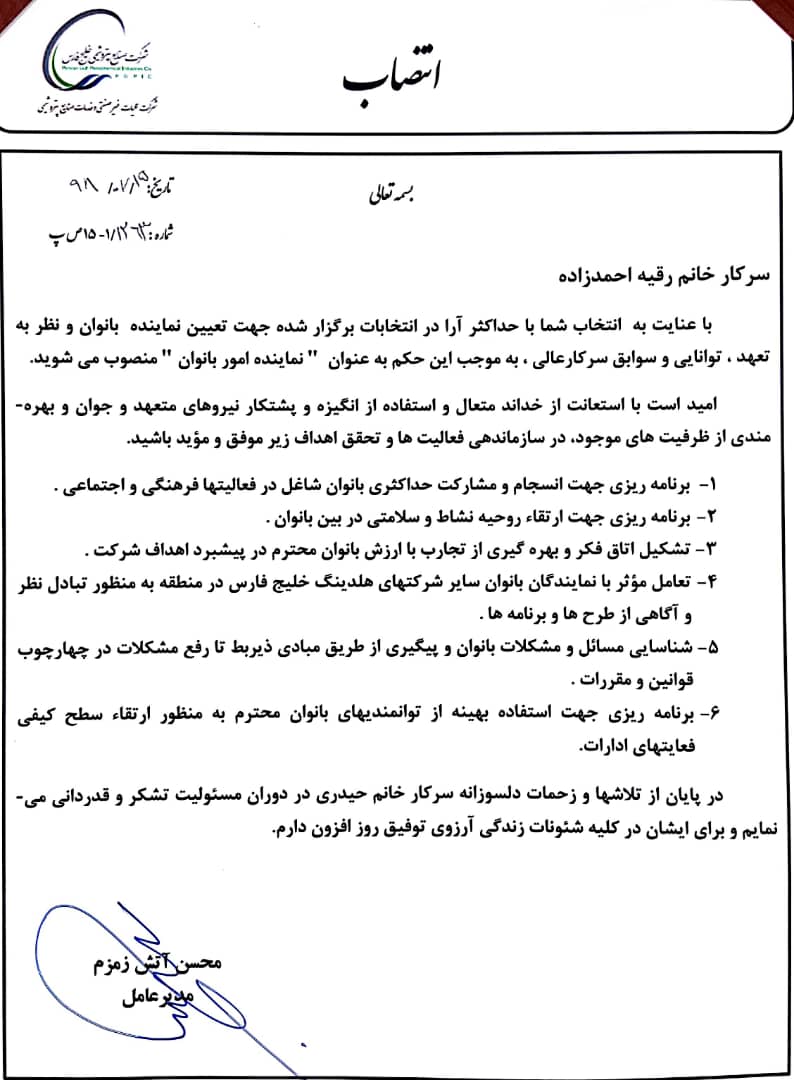 شرکت صنایع پتروشیمی خلیج فارس
Persian Gulf Petrochemical Industries Co.
P G P I C
شرکت عملیات غیر صنعتی و خدمات صنایع پتروشیمی
انتصاب
بسمه تعالی
تاریخ: ۹۸/۰۷/۱۵
شماره: ۱۵-۱/۱۲۶۳ ص پ
سرکار خانم رقیه احمدزاده
با عنایت به انتخاب شما با حداکثر آرا در انتخابات برگزار شده جهت تعیین نماینده بانوان و نظر به
تعهد ، توانایی و سوابق سرکارعالی ، به موجب این حکم به عنوان " نماینده امور بانوان " منصوب می شوید.
امید است با استعانت از خداند متعال و استفاده از انگیزه و پشتکار نیروهای متعهد و جوان و بهره-
مندی از ظرفیت های موجود، در سازماندهی فعالیت ها و تحقق اهداف زیر موفق و مؤید باشید.
۱- برنامه ریزی جهت انسجام و مشارکت حداکثری بانوان شاغل در فعالیتها فرهنگی و اجتماعی .
۲- برنامه ریزی جهت ارتقاء روحیه نشاط و سلامتی در بین بانوان .
۳- تشکیل اتاق فکر و بهره گیری از تجارب با ارزش بانوان محترم در پیشبرد اهداف شرکت .
۴- تعامل مؤثر با نمایندگان بانوان سایر شرکتهای هلدینگ خلیج فارس در منطقه به منظور تبادل نظر
و آگاهی از طرح ها و برنامه ها .
۵- شناسایی مسائل و مشکلات بانوان و پیگیری از طریق مبادی ذیربط تا رفع مشکلات در چهارچوب
قوانین و مقررات .
۶- برنامه ریزی جهت استفاده بهینه از توانمندیهای بانوان محترم به منظور ارتقاء سطح کیفی
فعایتهای ادارات.
در پایان از تلاشها و زحمات دلسوزانه سرکار خانم حیدری در دوران مسئولیت تشکر و قدردانی می-
نمایم و برای ایشان در کلیه شئونات زندگی آرزوی توفیق روز افزون دارم.
محسن آتش زمزم
مدیرعامل